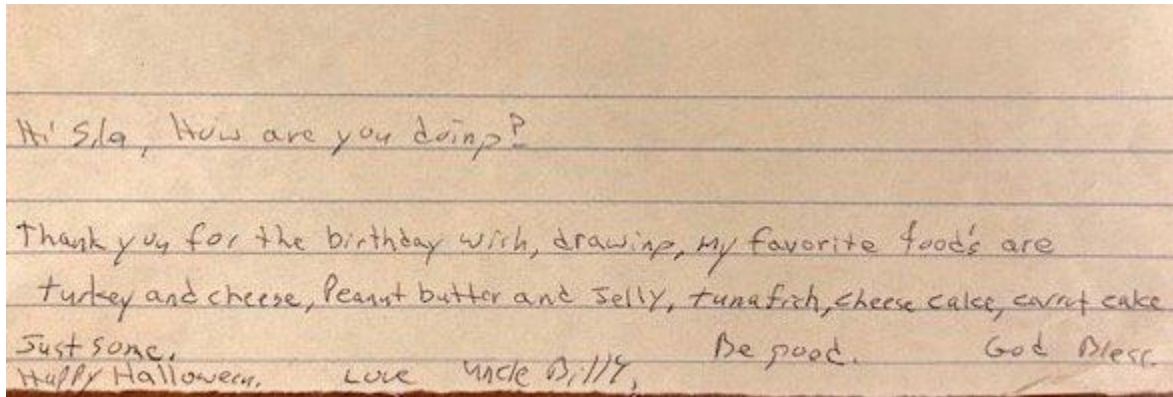 Hi Sila, How are you doing?
Thank you for the birthday wish, drawing, My favorite food's are
turkey and cheese, Peanut butter and Jelly, tunafish, cheese cake, carrot cake
Just some. Be good. God Bless.
Happy Halloween. Love Uncle Billy,